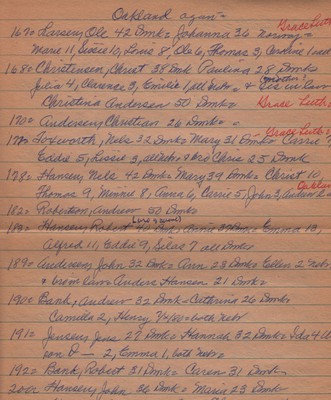 Oakland again
Grace Luth.
1670 Larsen, Ole 42 Dmk Johanna 36 Norway
Marie 11, Lissie 10, Louis 8, Ole 6, Thomas 3, Caroline
1680 Christensen, Christ 38 Dmk Paulina 28 Dmk
Julia 4, Clarence 3, Emilie 1, all Nebr & Sis in law
Christina Andersen 50 Dmk Grace Luth.
1700 Andersen, Christian 26 Dmk
Grace Luth.
Foxworth, Nels 32 Dmk Mary 31 Dmk Carrie
Eddie 5, Lissie 3, all Nebr & bro Chris 25 Dmk
1780 Hansen, Nels 42 Dmk Mary 39 Dmk Christ 10,
Oakland
Thomas 9, Minnie 8, Anna 6, Carrie 5, John 3, Andrew
1820 Robertson, Andrew 50 Dmk
1830 Hansen, Robert 40 Dmk Annie Emma 13,
Alfred 11, Eddie 9, Silas 7 all Dmk
1890 Andersen, John 32 Dmk Ann 28 Dmk Ellen 2 Nebr
& bro in law Anders Hansen 21 Dmk
1900 Bank, Andrew 32 Dmk Catherine 26 Dmk
Camilla 2, Henry both Nebr
1910 Jensen, Jens 27 Dmk Hannah 32 Dmk Ida 4
son D — 2, Emma 1, both Nebr
1920 Bank, Robert 31 Dmk Caren 31 Dmk
2000 Hansen, John 36 Dmk Maria 23 Dmk